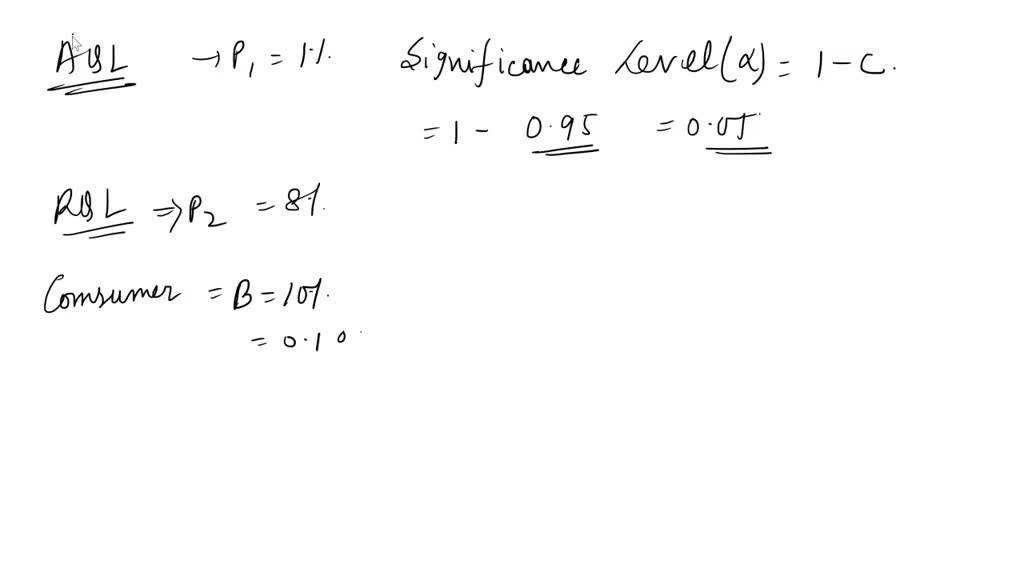 AQL → P₁ = 1%.
Significance Level(α) = 1 - C.
= 1 - 0.95 = 0.05
RQL ⇒ P₂ = 8%.
Consumer = B = 10%.
= 0.10.